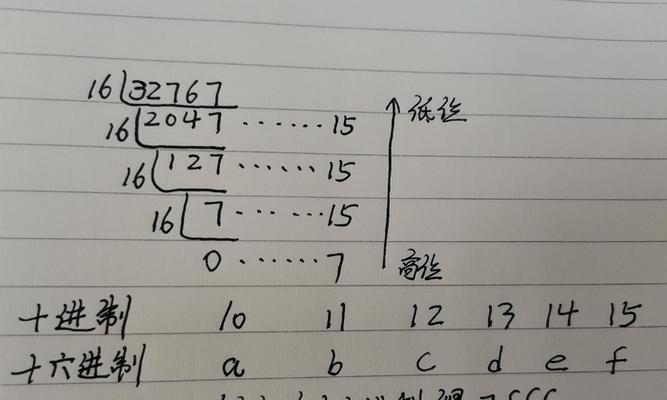 16 32767
16 2047 ······ 15 低位
16 127 ······ 15
16 7 ······ 15
0 ······ 7 高位
十进制 10 11 12 13 14 15
十六进制 a b c d e f